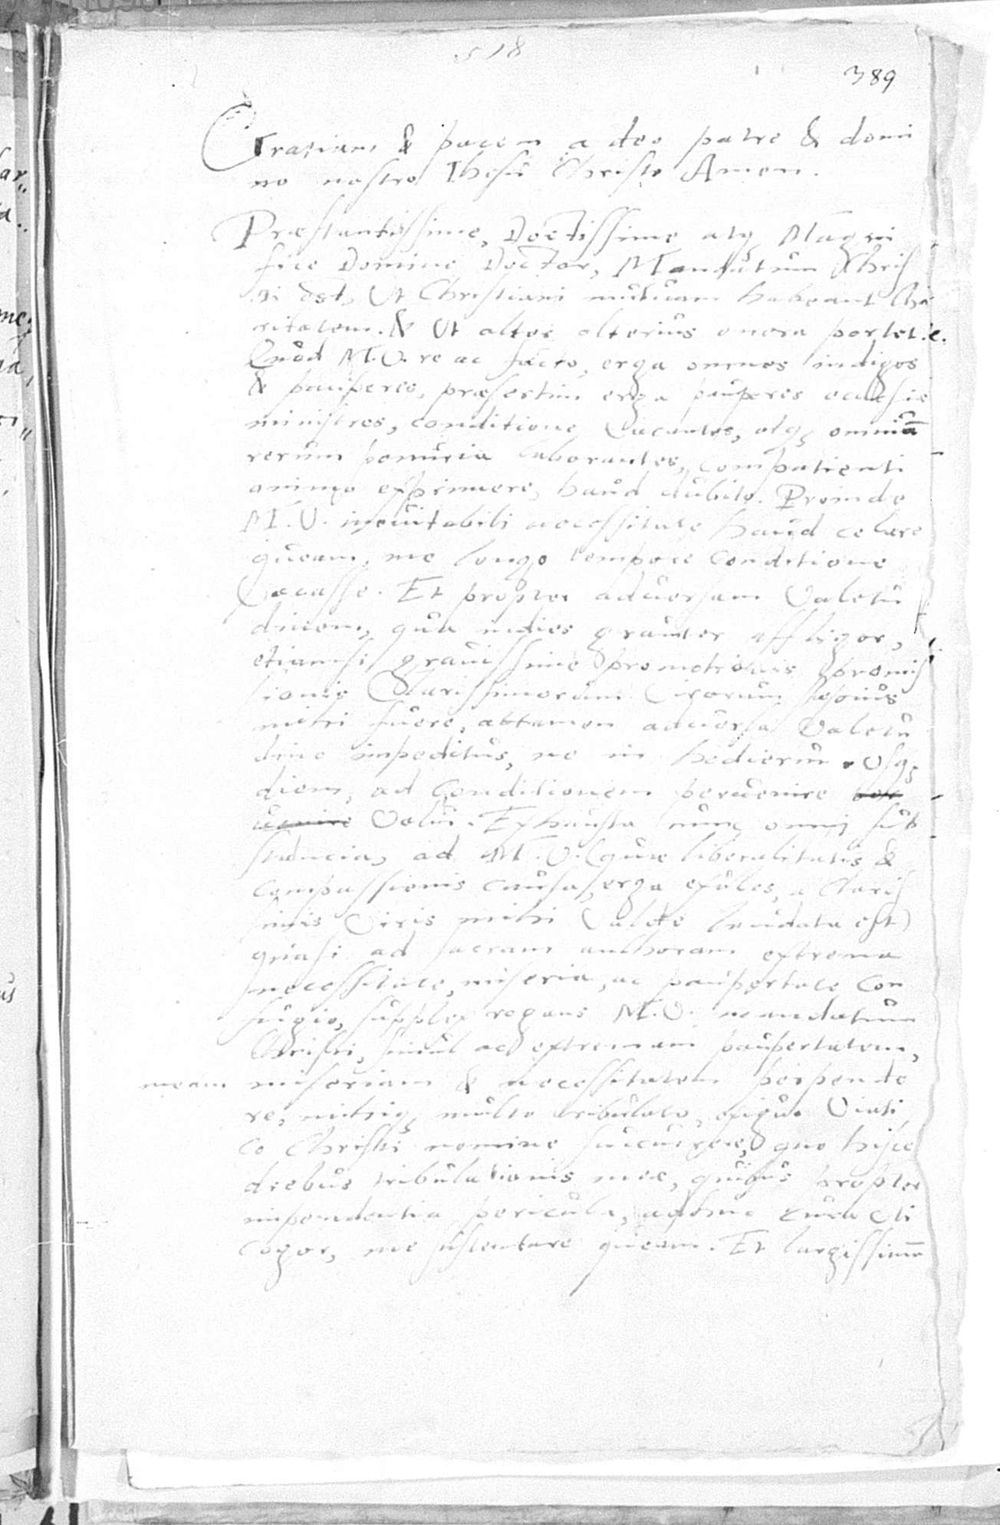 518
389
Gratiam & pacem a deo patre & domi
no nostro Ihesu Christo Amen.
Præstantissime, Doctissime atq Magni
fice Domine Doctor, Mandatum Chris
ti est, Ut Christiani mutuam habeant Cha
ritatem. & Ut alter alterius onera portet.
Quod M.V. re ac facto, erga omnes indigos
& pauperes, præsertim erga pauperes ecclesiæ
ministros, conditione Vacantes, atq omniū
rerum penuria laborantes, compatienti
animo exprimere, haud dubito. Proinde
M.V. inevitabili necessitate haud celare
queam, me longo tempore Conditione
Vacasse. Et propter adversam Valetu
dinem, qua indies graviter affligor,
etiamsi gravissime promotionis promis
siones Clarissimorum Virorum sepius
mihi fuere, attamen adversa Valetu
dine impeditus, ne in hodiernū Usq
diem, ad Conditionem pervenire
Volui. Exhausta nunc omni sub
stancia, ad M.V. (quæ liberalitatis &
compassionis causa, erga exules, a Claris
simis Viris mihi Valde laudata est)
quasi ad sacram anchoram extrema
necessitate, miseria, ac paupertate con
fugio, supplex rogans M.V. mandatum
Christi, simul ac extremam paupertatem,
meam miseriam & necessitatem perpende
re, mihiq multo tribulato, exiguo Viati
co Christi nomine succurrere, quo hisce
diebus tribulationis meæ, quibus propter
impendentia pericula, adhuc
cogor, me sustentare queam. Et largissimo